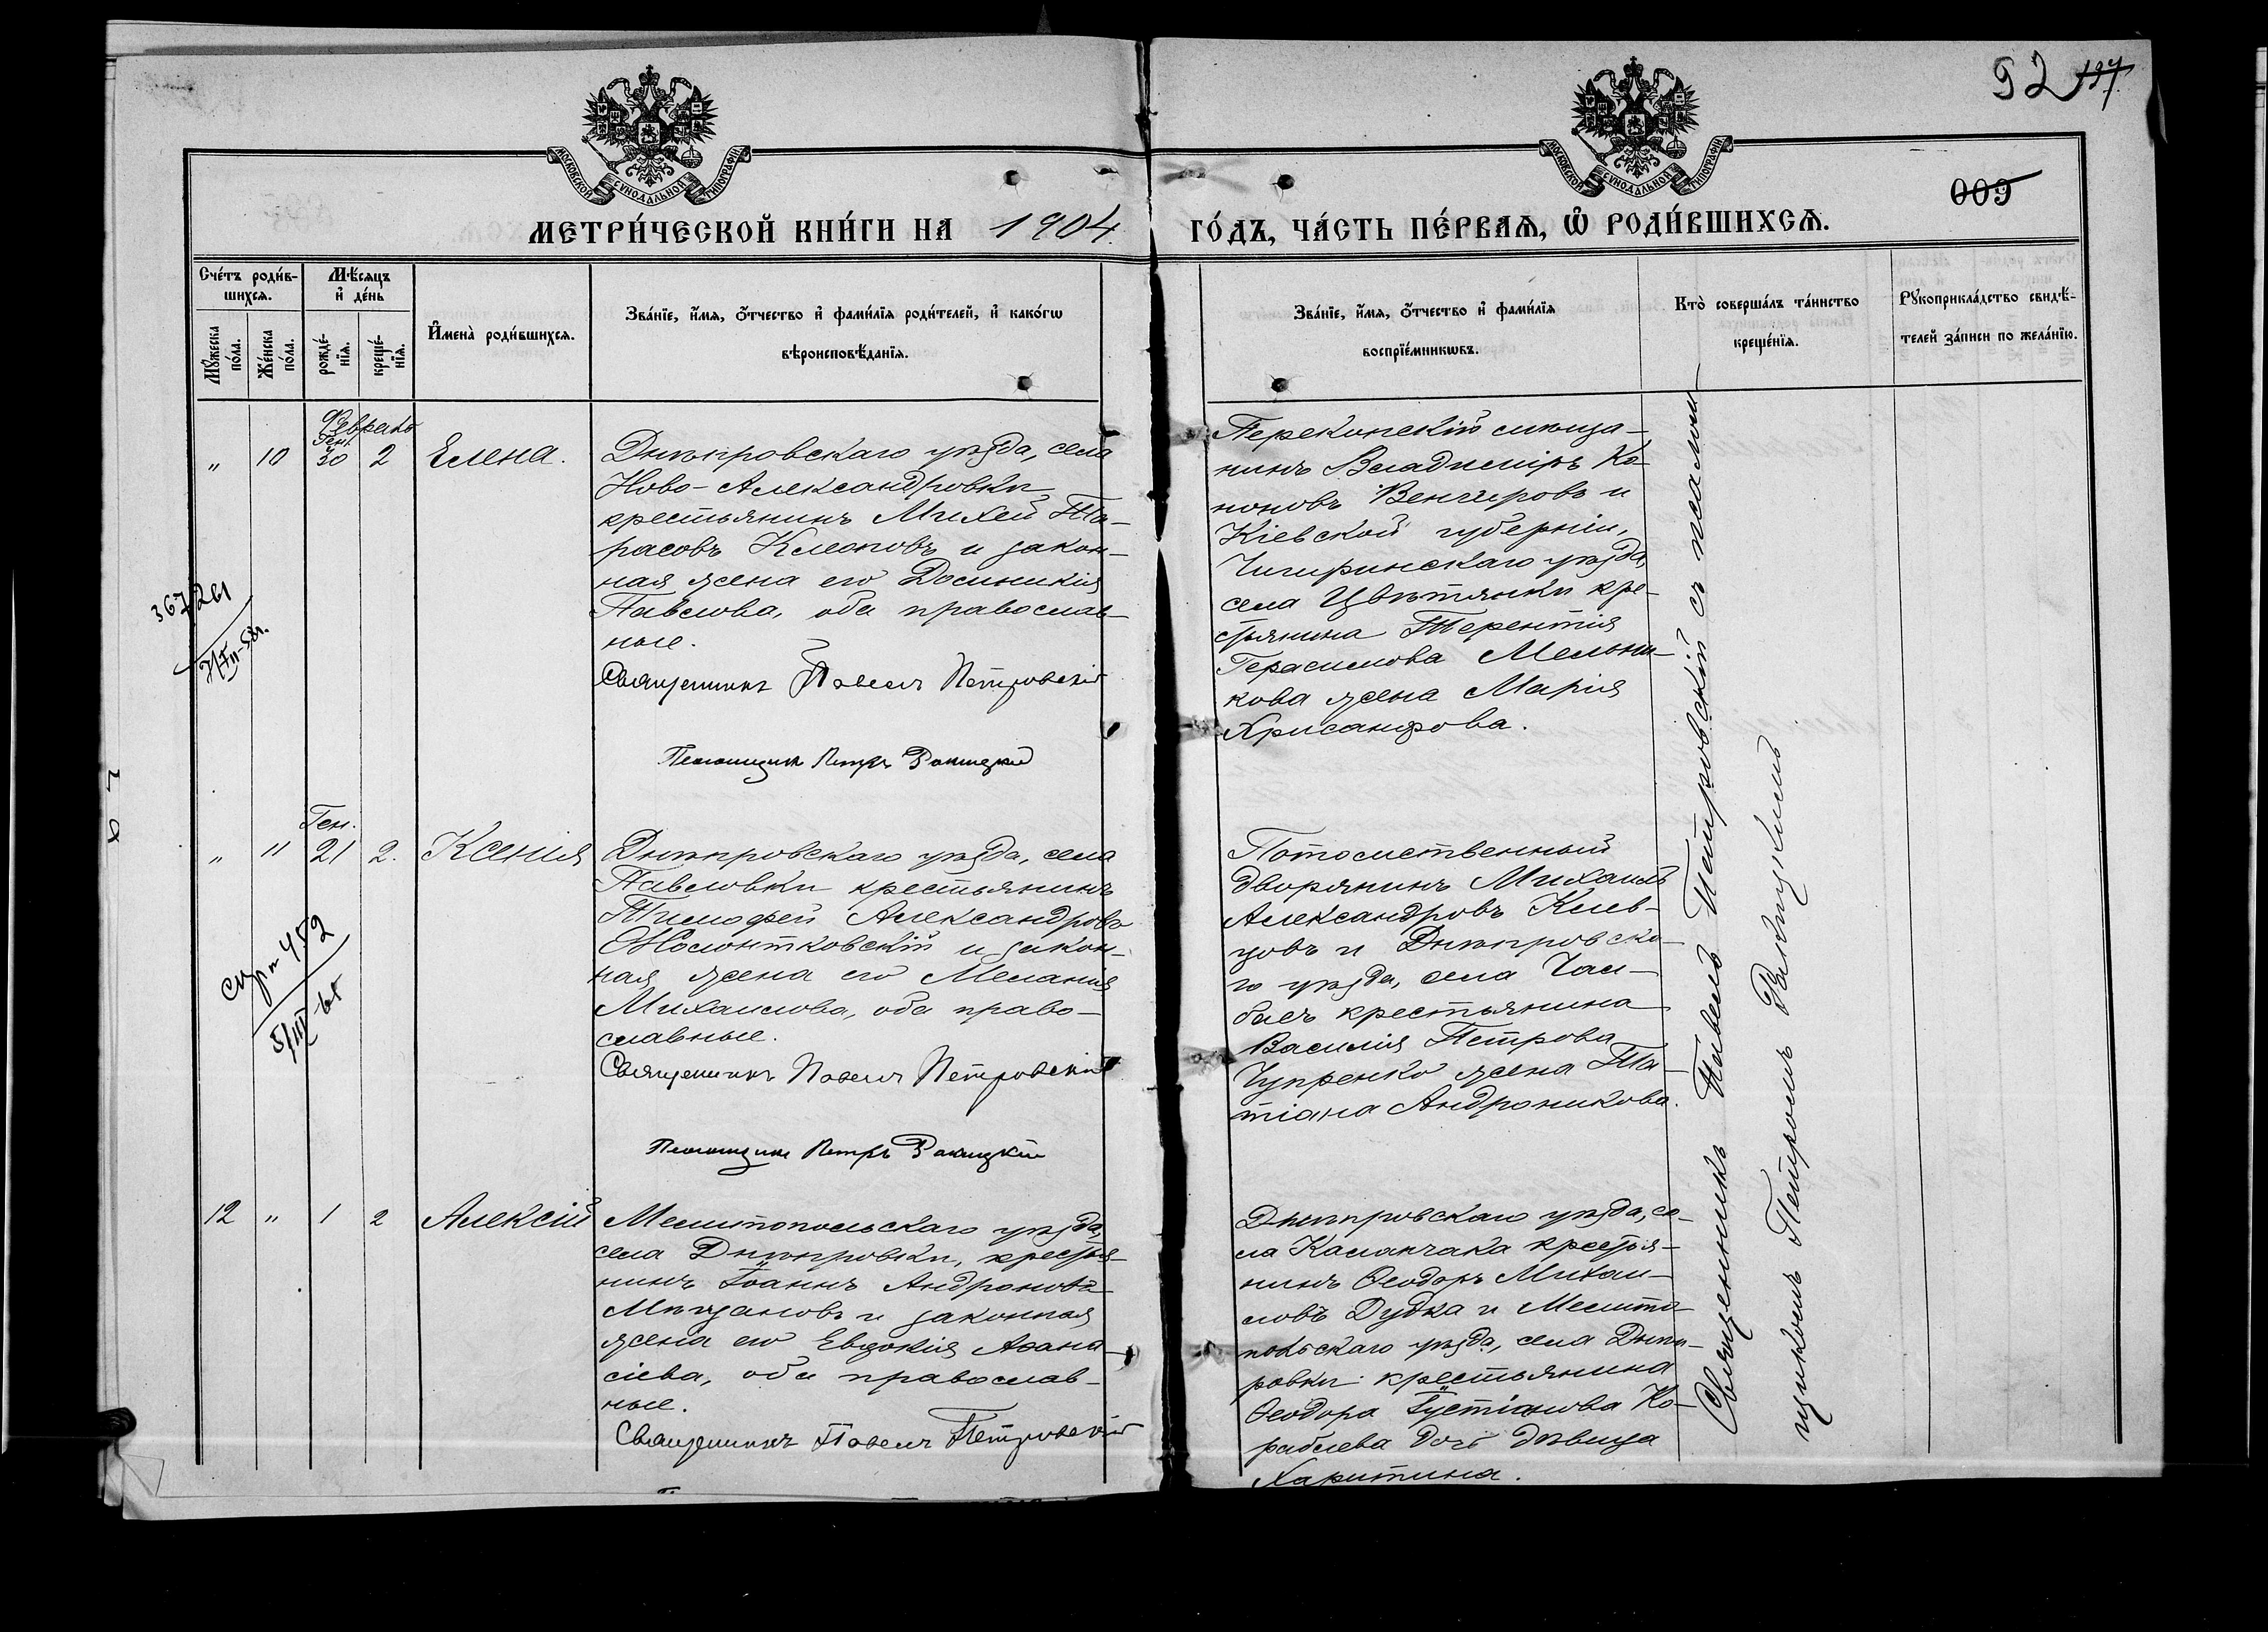 92 197
009
МОСКОВСКОЙ СУНОДАЛЬНОЙ ТИПОГРАФІИ
МОСКОВСКОЙ СУНОДАЛЬНОЙ ТИПОГРАФІИ
МЕТРИ́ЧЕСКОЙ КНИ́ГИ НА 1904. ГО́ДЪ, ЧА́СТЬ ПЕ́РВАѦ, Ѽ РОДИ́ВШИХСѦ.
Сче́тъ роди́в-
шихсѧ.
Мꙋжеска по́ла.
Же́нска по́ла.
Мѣ́сѧцъ
и҆ де́нь
рожде́-нїѧ.
креще́-нїѧ.
И҆мена̀ роди́вшихсѧ.
Зва́нїе, и҆́мѧ, ѻ҆́тчество и҆ фами́лїѧ роди́телей, и҆ како́гѡ
вѣроисповѣ́данїѧ.
Зва́нїе, и҆́мѧ, ѻ҆́тчество и҆ фами́лїѧ
воспрїе́мникѡвъ.
Кто̀ соверша́лъ та́инство
креще́нїѧ.
Рꙋкоприкла́дство свидѣ́-
телей за́писи по жела́нїю.
Февраль
Ген.
" 10 30 2 Елена.
Днѣпровскаго уѣзда, села
Ново-Александровки
крестьянинъ Михей Та-
расовъ Клеоповъ и закон-
ная жена его Досиникія
Павлова, оба православ-
ные.
Священникъ Павелъ Петровскій
Псаломщикъ Петръ Ракицкій
Перекопскій мѣща-
нинъ Владиміръ Ко-
ноновъ Венгеровъ и
Кіевской губерніи,
Чигиринскаго уѣзда,
села Цвѣтянки кре-
стьянина Терентія
Герасимова Мельни-
кова жена Марія
Хрисанфова.
367261
Ген.
" 11 21 2. Ксенія
Днѣпровскаго уѣзда, села
Павловки крестьянинъ
Тимофей Александровъ
Жолонтковскій и закон-
ная жена его Меланія
Михаилова, оба право-
славные.
Священникъ Павелъ Петровскій
Псаломщикъ Петръ Ракицкій
Потомственный
дворянинъ Михаилъ
Александровъ Клев-
цовъ и Днѣпровска-
го уѣзда, села Чал-
басъ крестьянина
Василія Петрова
Чупренко жена Та-
тіана Андроникова.
12 " 1 2 Алексій
Мелитопольскаго уѣзда,
села Днѣпровки, крестья-
нинъ Іоаннъ Андроновъ
Мѣщановъ и законная
жена его Евдокія Аѳана-
сіева, оба православ-
ные.
Священникъ Павелъ Петровскій
Днѣпровскаго уѣзда, се-
ла Каланчака крестья-
нинъ Ѳеодоръ Михаи-
ловъ Дудка и Мелито-
польскаго уѣзда, села Днѣп-
ровки крестьянина
Ѳеодора Іустіанова Ко-
раблева дочь дѣвица
Харитина.
Священникъ Павелъ Петровскій съ псалом-
щикомъ Петромъ Ракицкимъ